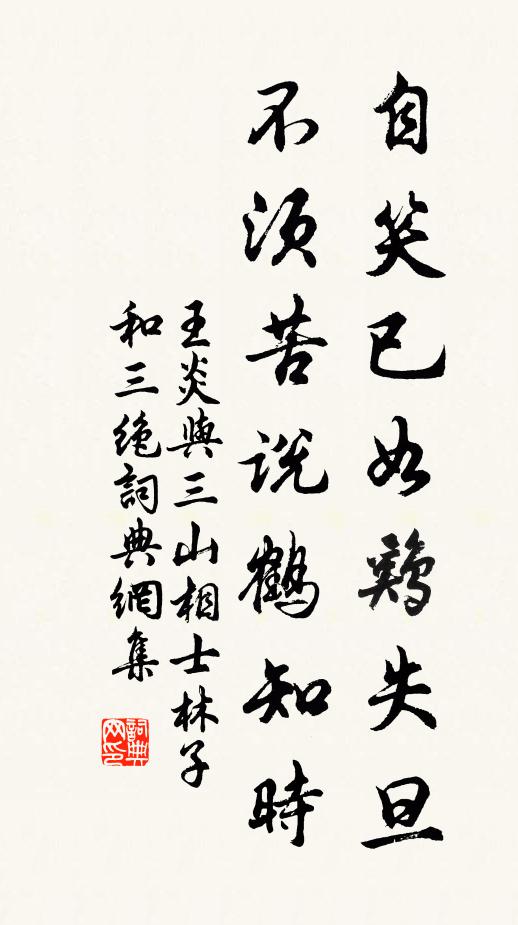 自笑已如鷄失旦
不須苦説鶴知時
王炎與三山相士林子
和三絶詞典網集
詞典
网印